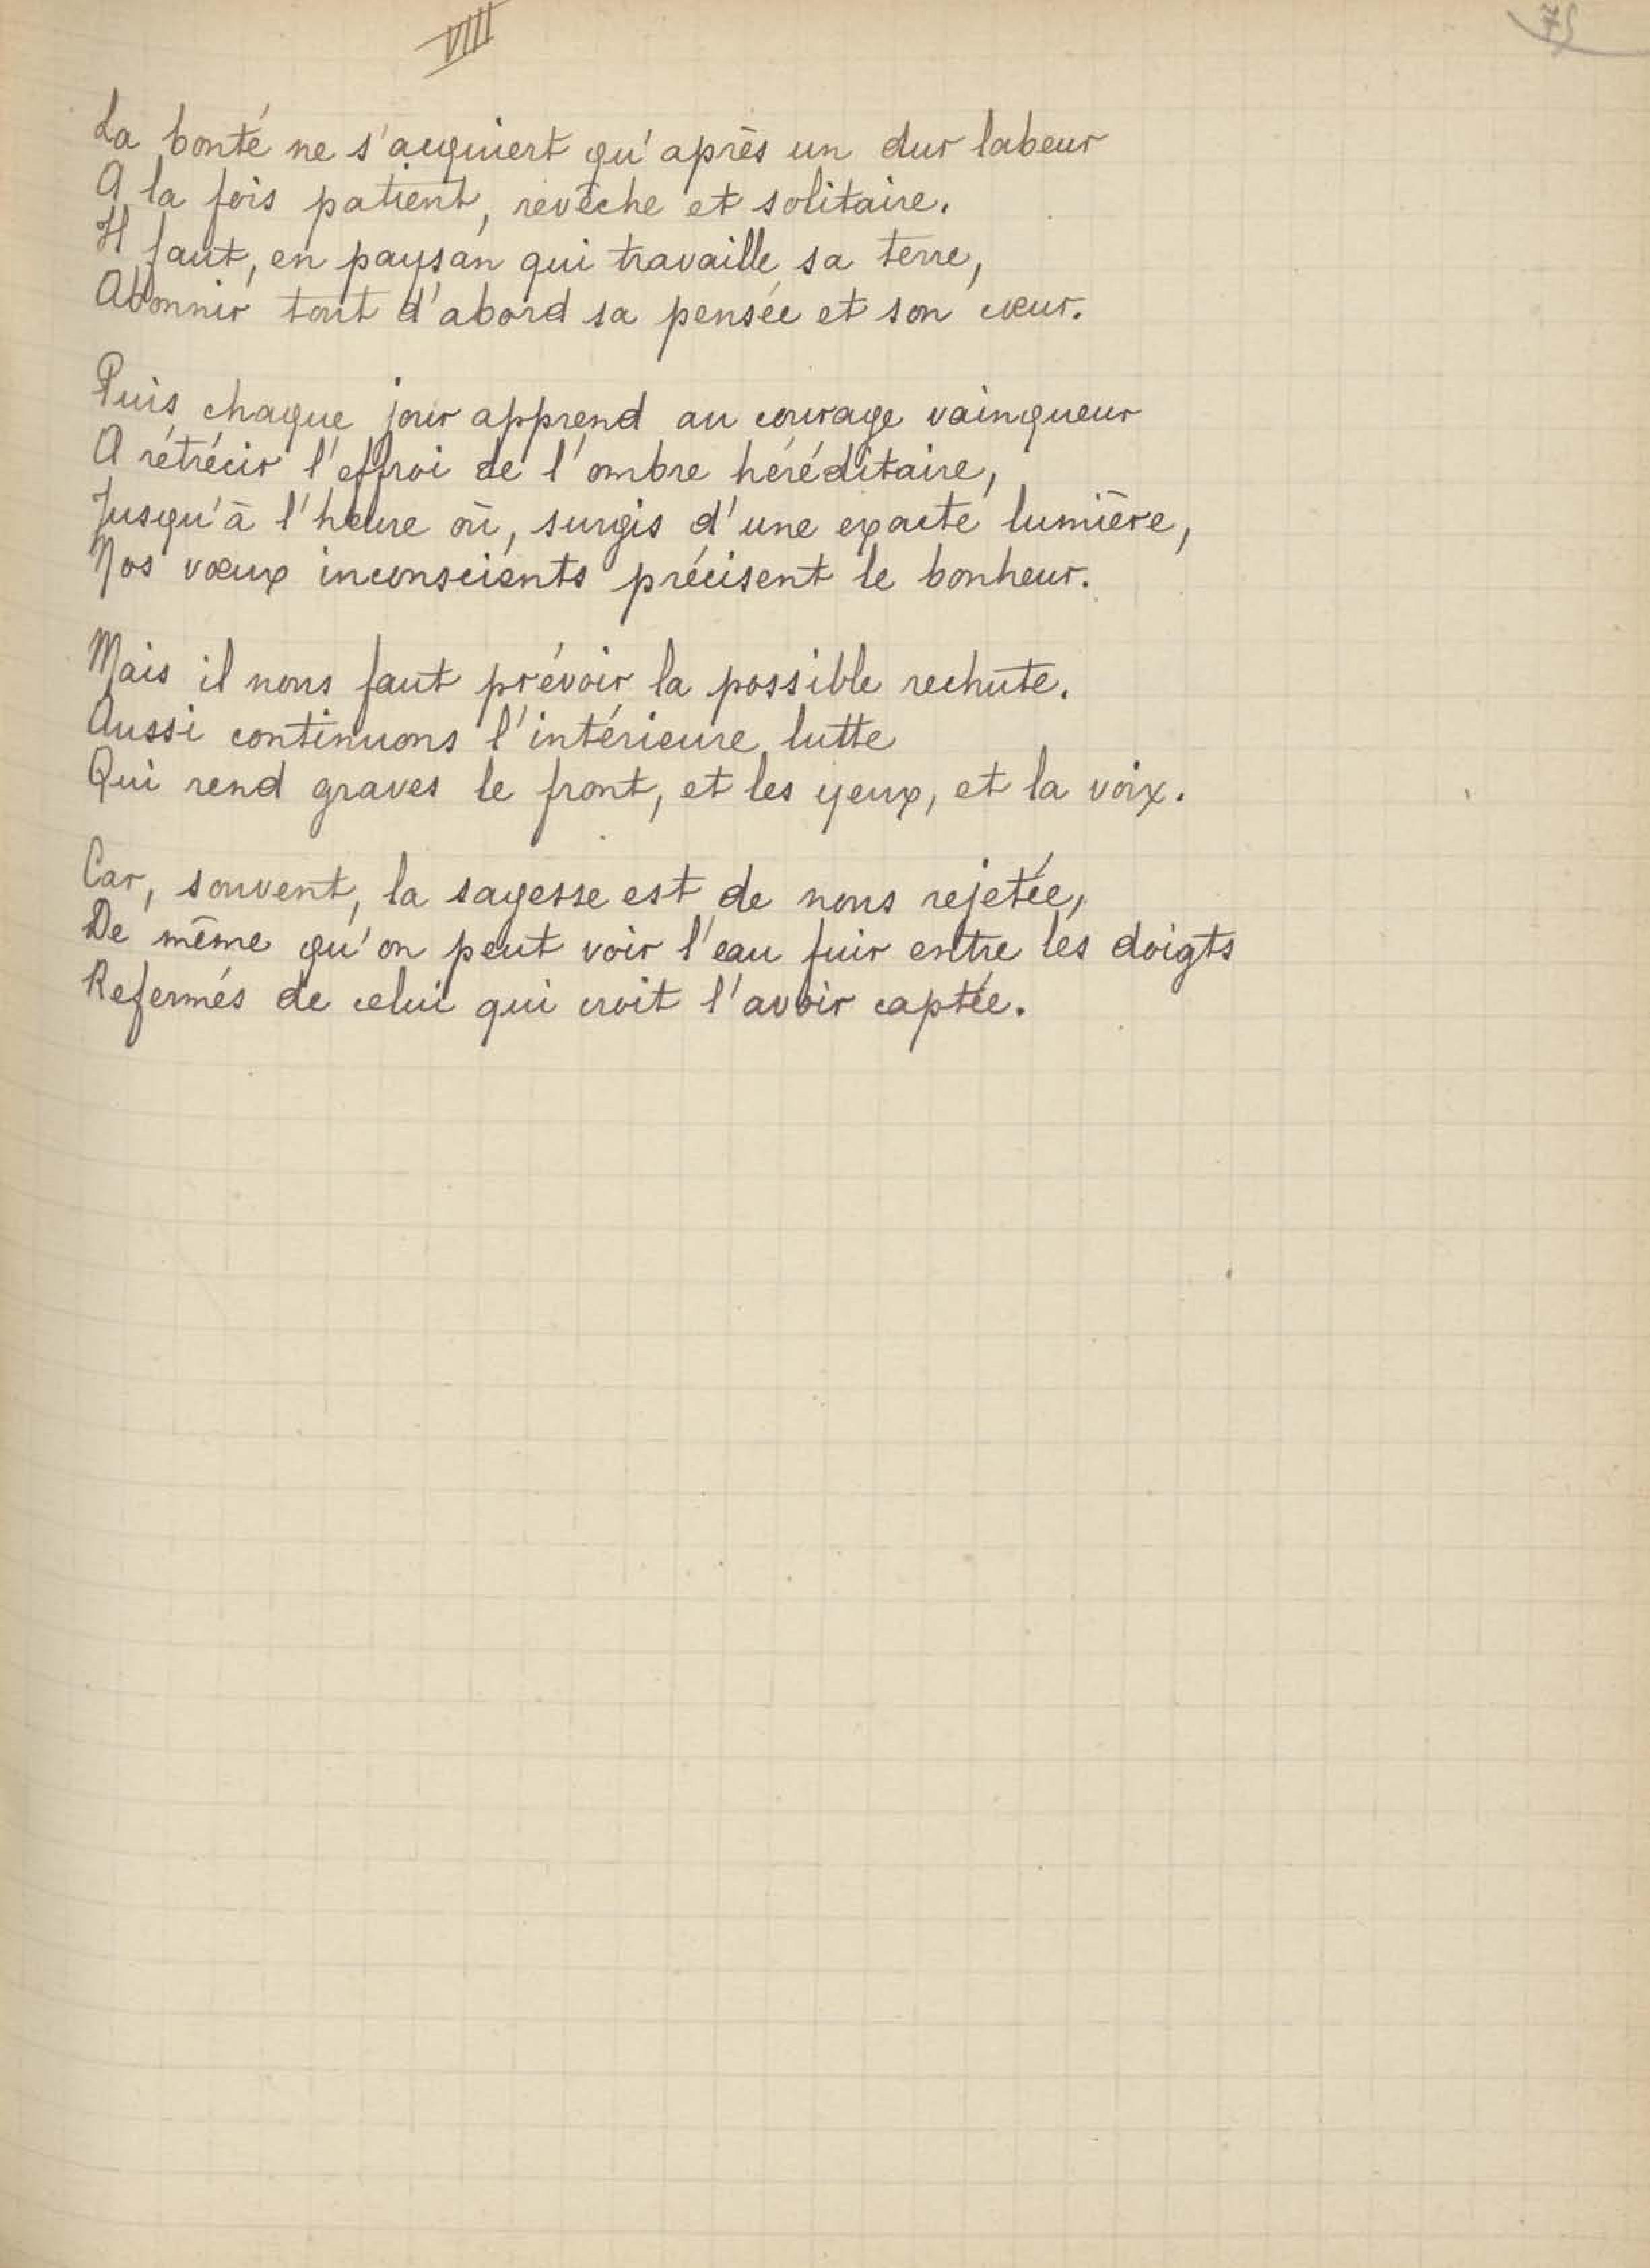 VIII
La bonté ne s'acquiert qu'après un dur labeur
A la fois patient, revêche et solitaire.
Il faut, en paysan qui travaille sa terre,
Abonnir tout d'abord sa pensée et son cœur.
Puis, chaque jour apprend au courage vainqueur
A rétrécir l'effroi de l'ombre héréditaire,
Jusqu'à l'heure où, surgis d'une exacte lumière,
Nos vœux inconscients précisent le bonheur.
Mais il nous faut prévoir la possible rechute.
Aussi continuons l'intérieure lutte
Qui rend graves le front, et les yeux, et la voix.
Car, souvent, la sagesse est de nous rejetée,
De même qu'on peut voir l'eau fuir entre les doigts
Refermés de celui qui croit l'avoir captée.